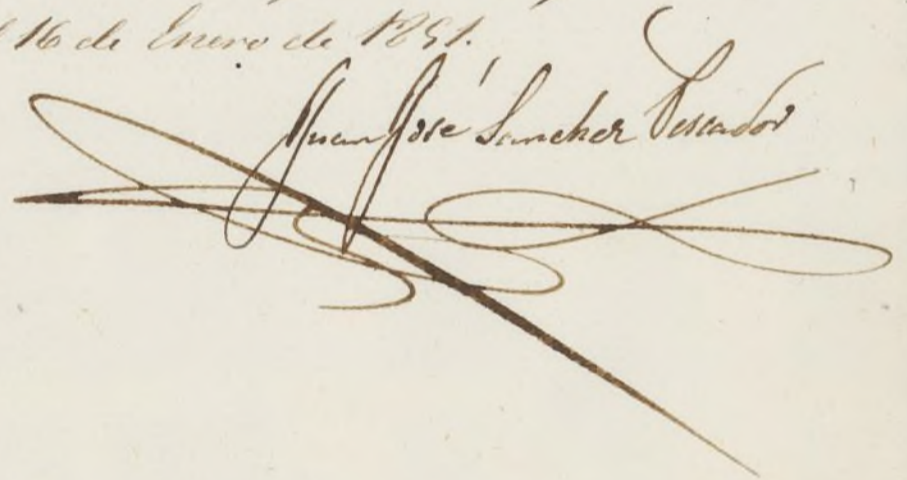 16 de Enero de 1851.
Juan José Sanchez Pescador